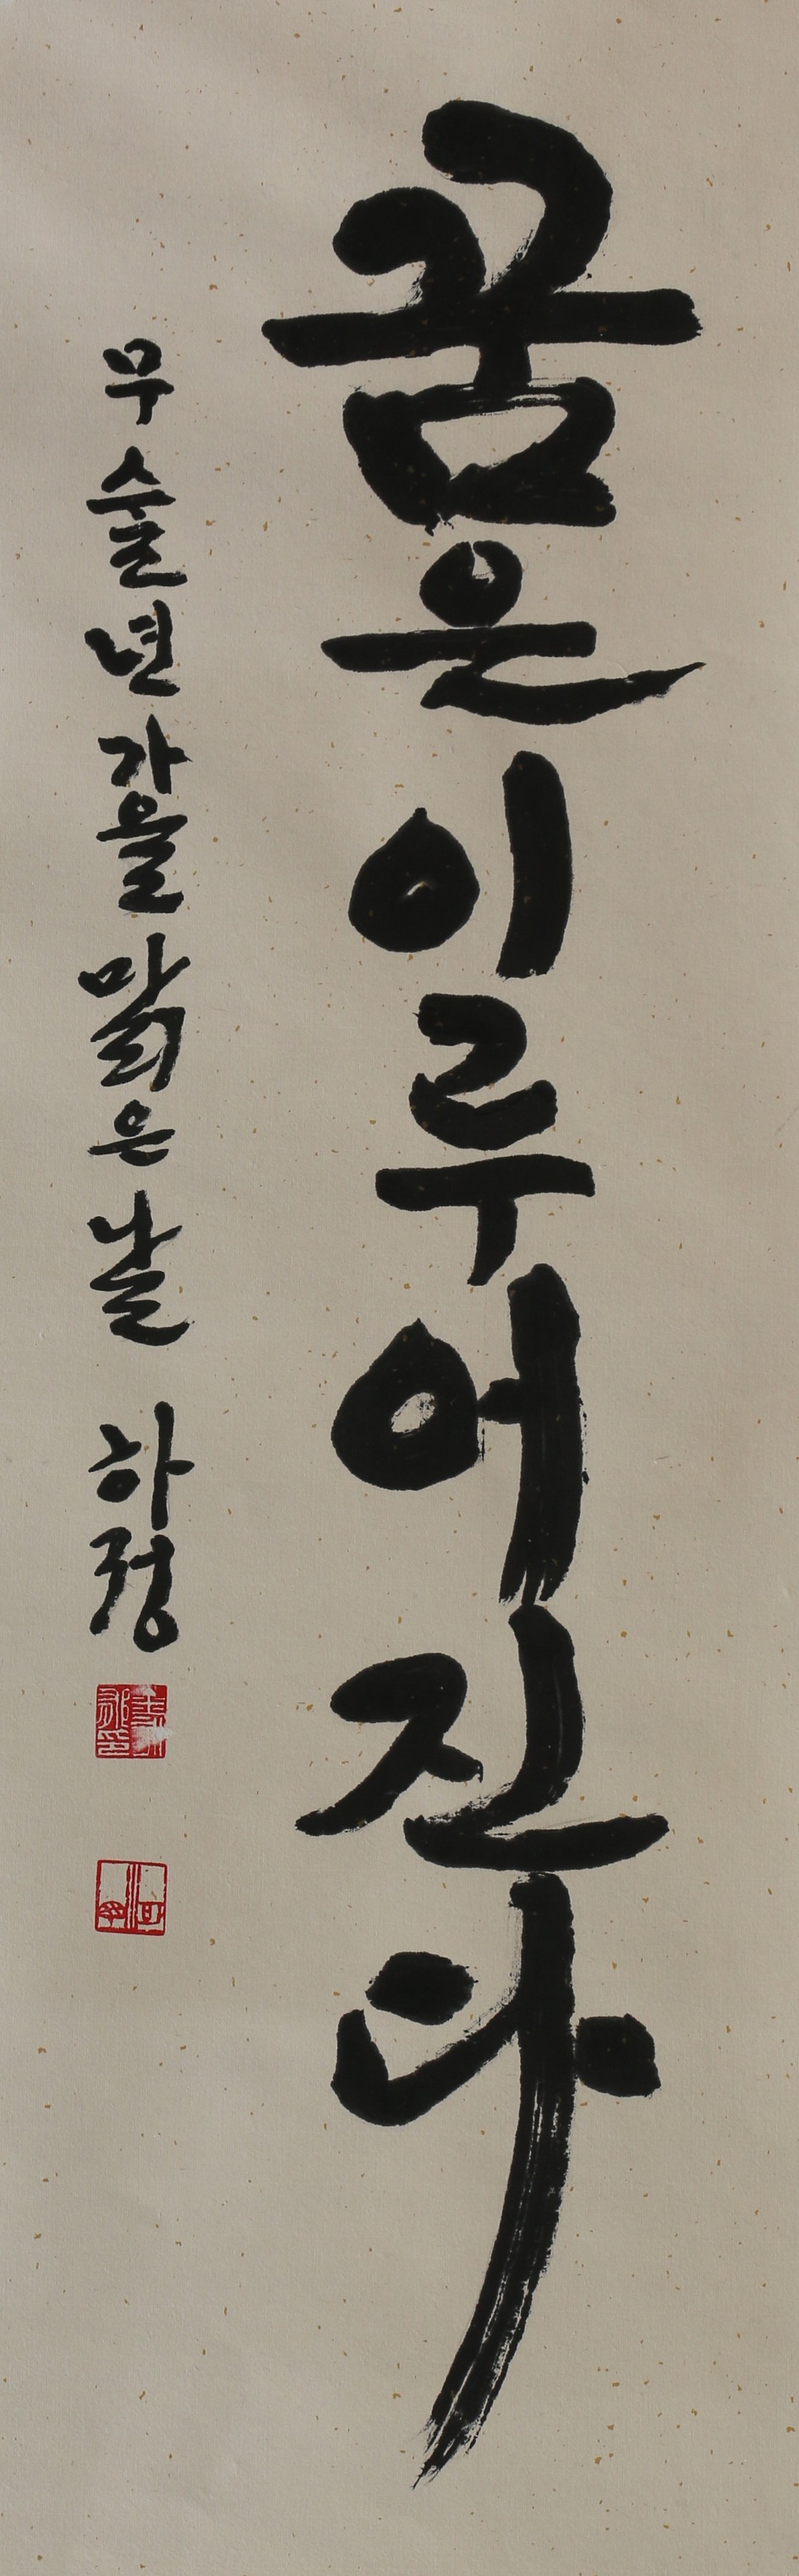 꿈은 이루어진다
무술년 가을 맑은 날 하정